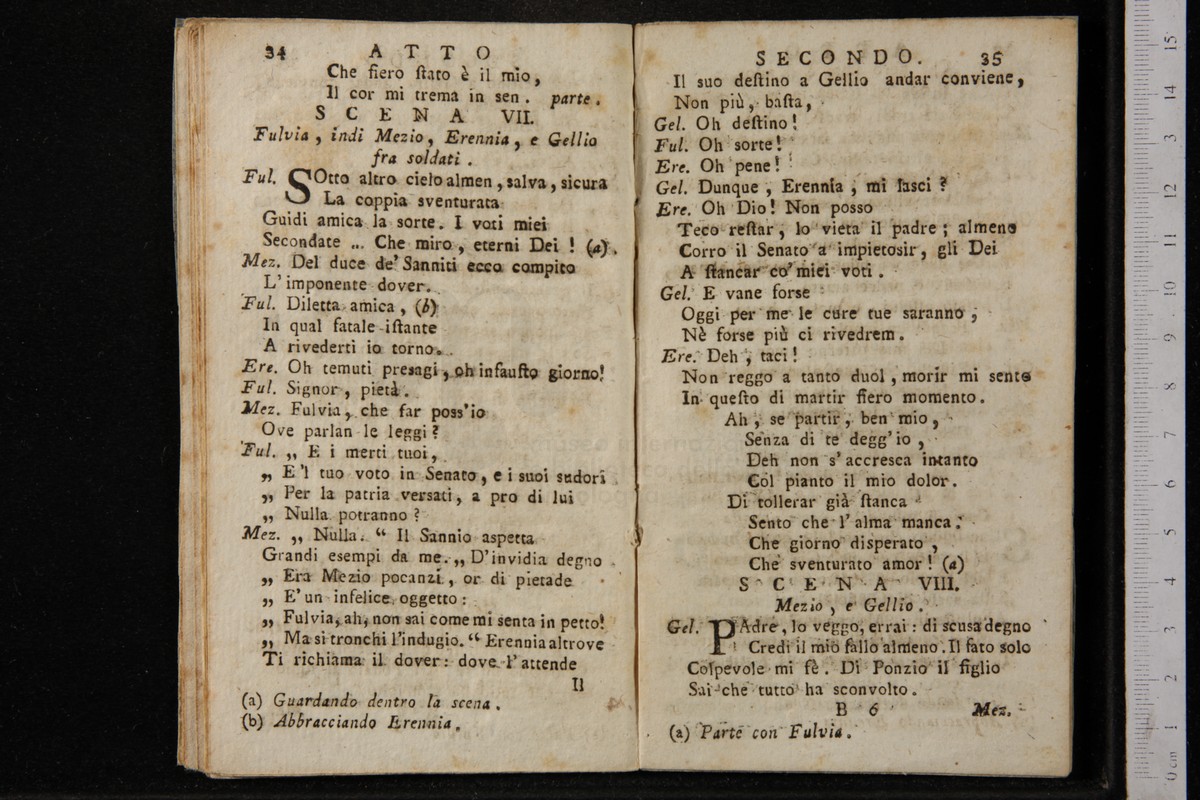 34 ATTO
Che fiero ſtato è il mio,
Il cor mi trema in sen. parte.
SCENA VII.
Fulvia, indi Mezio, Erennia, e Gellio
fra soldati.
Ful. SOtto altro cielo almen, salva, sicura
La coppia sventurata
Guidi amica la sorte. I voti miei
Secondate ... Che miro, eterni Dei! (a).
Mez. Del duce de' Sanniti ecco compito
L'imponente dover.
Ful. Diletta amica, (b)
In qual fatale iſtante
A rivederti io torno.
Ere. Oh temuti presagi, oh infauſto giorno!
Ful. Signor, pietà.
Mez. Fulvia, che far poss'io
Ove parlan le leggi?
Ful. „ E i merti tuoi,
„ E 'l tuo voto in Senato, e i suoi sudori
„ Per la patria versati, a pro di lui
„ Nulla potranno?
Mez. „ Nulla. “ Il Sannio aspetta
Grandi esempi da me. „ D'invidia degno
„ Era Mezio pocanzi, or di pietade
„ E' un infelice oggetto:
„ Fulvia, ah, non sai come mi senta in petto!
„ Ma si tronchi l'indugio. “ Erennia altrove
Ti richiama il dover: dove l'attende
Il
(a) Guardando dentro la scena.
(b) Abbracciando Erennia.
SECONDO. 35
Il suo deſtino a Gellio andar conviene,
Non più, baſta,
Gel. Oh deſtino!
Ful. Oh sorte!
Ere. Oh pene!
Gel. Dunque, Erennia, mi lasci?
Ere. Oh Dio! Non posso
Teco reſtar, lo vieta il padre; almeno
Corro il Senato a impietosir, gli Dei
A ſtancar co' miei voti.
Gel. E vane forse
Oggi per me le cure tue saranno,
Nè forse più ci rivedrem.
Ere. Deh, taci!
Non reggo a tanto duol, morir mi sento
In queſto di martir fiero momento.
Ah, se partir, ben mio,
Senza di te degg'io,
Deh non s'accresca intanto
Col pianto il mio dolor.
Di tollerar già ſtanca
Sento che l'alma manca:
Che giorno disperato,
Che sventurato amor! (a)
SCENA VIII.
Mezio, e Gellio.
Gel. PAdre, lo veggo, errai: di scusa degno
Credi il mio fallo almeno. Il fato solo
Colpevole mi fè. Di Ponzio il figlio
Sai che tutto ha sconvolto.
B 6 Mez.
(a) Parte con Fulvia.
0 cm 1 2 3 4 5 6 7 8 9 10 11 12 13 14 15